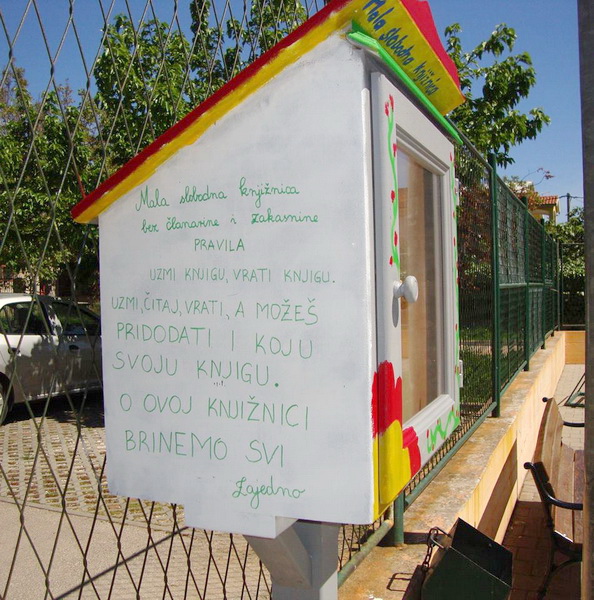 Mala slobodna knjižnica
Mala slobodna knjižnica
bez članarine i zakasnine
PRAVILA
UZMI KNJIGU, VRATI KNJIGU.
UZMI, ČITAJ, VRATI, A MOŽEŠ
PRIDODATI I KOJU
SVOJU KNJIGU.
O OVOJ KNJIŽNICI
BRINEMO SVI
Zajedno